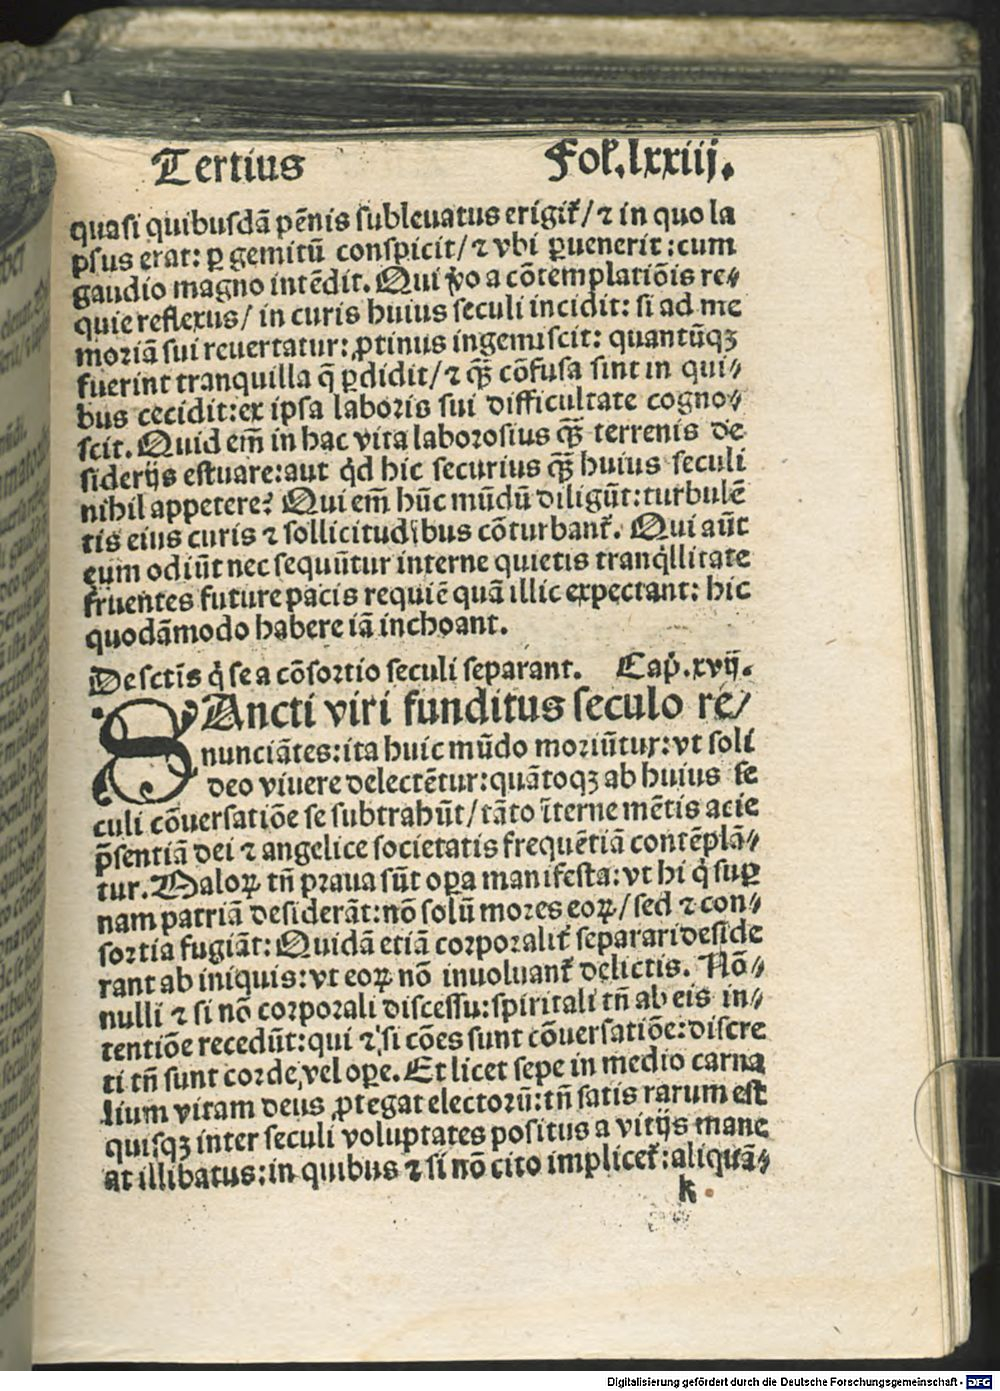 Tertius Fol.lxxiij.
quasi quibusdā pēnis subleuatus erigit᷑/ ⁊ in quo la
psus erat: ꝑ gemitū conspicit/ ⁊ vbi ꝑuenerit: cum
gaudio magno intēdit. Qui v̄o a cōtemplatiōis re⸗
quie reflexus/ in curis huius seculi incidit: si ad me
moriā sui reuertatur: ꝓtinus ingemiscit: quantūqꝫ
fuerint tranquilla q̄ ꝑdidit/ ⁊ q̄ꝫ cōfusa sint in qui⸗
bus cecidit: ex ipsa laboris sui difficultate cogno⸗
scit. Quid em̄ in hac vita laboriosius q̄ꝫ terrenis de
siderijs estuare: aut qͥd hic securius q̄ꝫ huius seculi
nihil appetere? Qui em̄ hūc mūdū diligūt: turbulē
tis eius curis ⁊ sollicitudībus cōturbant᷑. Qui aūt
eum odiūt nec sequūtur interne quietis tranqͥllitate
fruentes future pacis requiē quā illic expectant: hic
quodāmodo habere iā inchoant.
De sctīs qͥ se a cōsortio seculi separant. Cap̄. xvij.
SAncti viri funditus seculo re⸗
nunciātes: ita huic mūdo moriūtur: vt soli
deo viuere delectētur: quātoqꝫ ab huius se
culi cōuersatiōe se subtrahūt/ tāto īterne mētis acie
p̄sentiā dei ⁊ angelice societatis frequētiā contēplā⸗
tur. Maloꝝ tn̄ praua sūt oꝑa manifesta: vt hi qͥ suꝑ
nam patriā desiderāt: nō solū mores eoꝝ/ sed ⁊ con⸗
sortia fugiāt: Quidā etiā corporalit᷑ separari deside
rant ab iniquis: vt eoꝝ nō inuoluant᷑ delictis. Nō⸗
nulli ⁊ si nō corporali discessu: spiritali tn̄ ab eis in⸗
tentiōe recedūt: qui ⁊ si cōes sunt cōuersatiōe: discre
ti tn̄ sunt corde, vel oꝑe. Et licet sepe in medio carna
lium vitam deus ꝓtegat electorū: tn̄ satis rarum est
quisqꝫ inter seculi voluptates positus a vitijs mane
at illibatus: in quibus ⁊ si nō cito implicet᷑: aliquā⸗
k
Digitalisierung gefördert durch die Deutsche Forschungsgemeinschaft - DFG